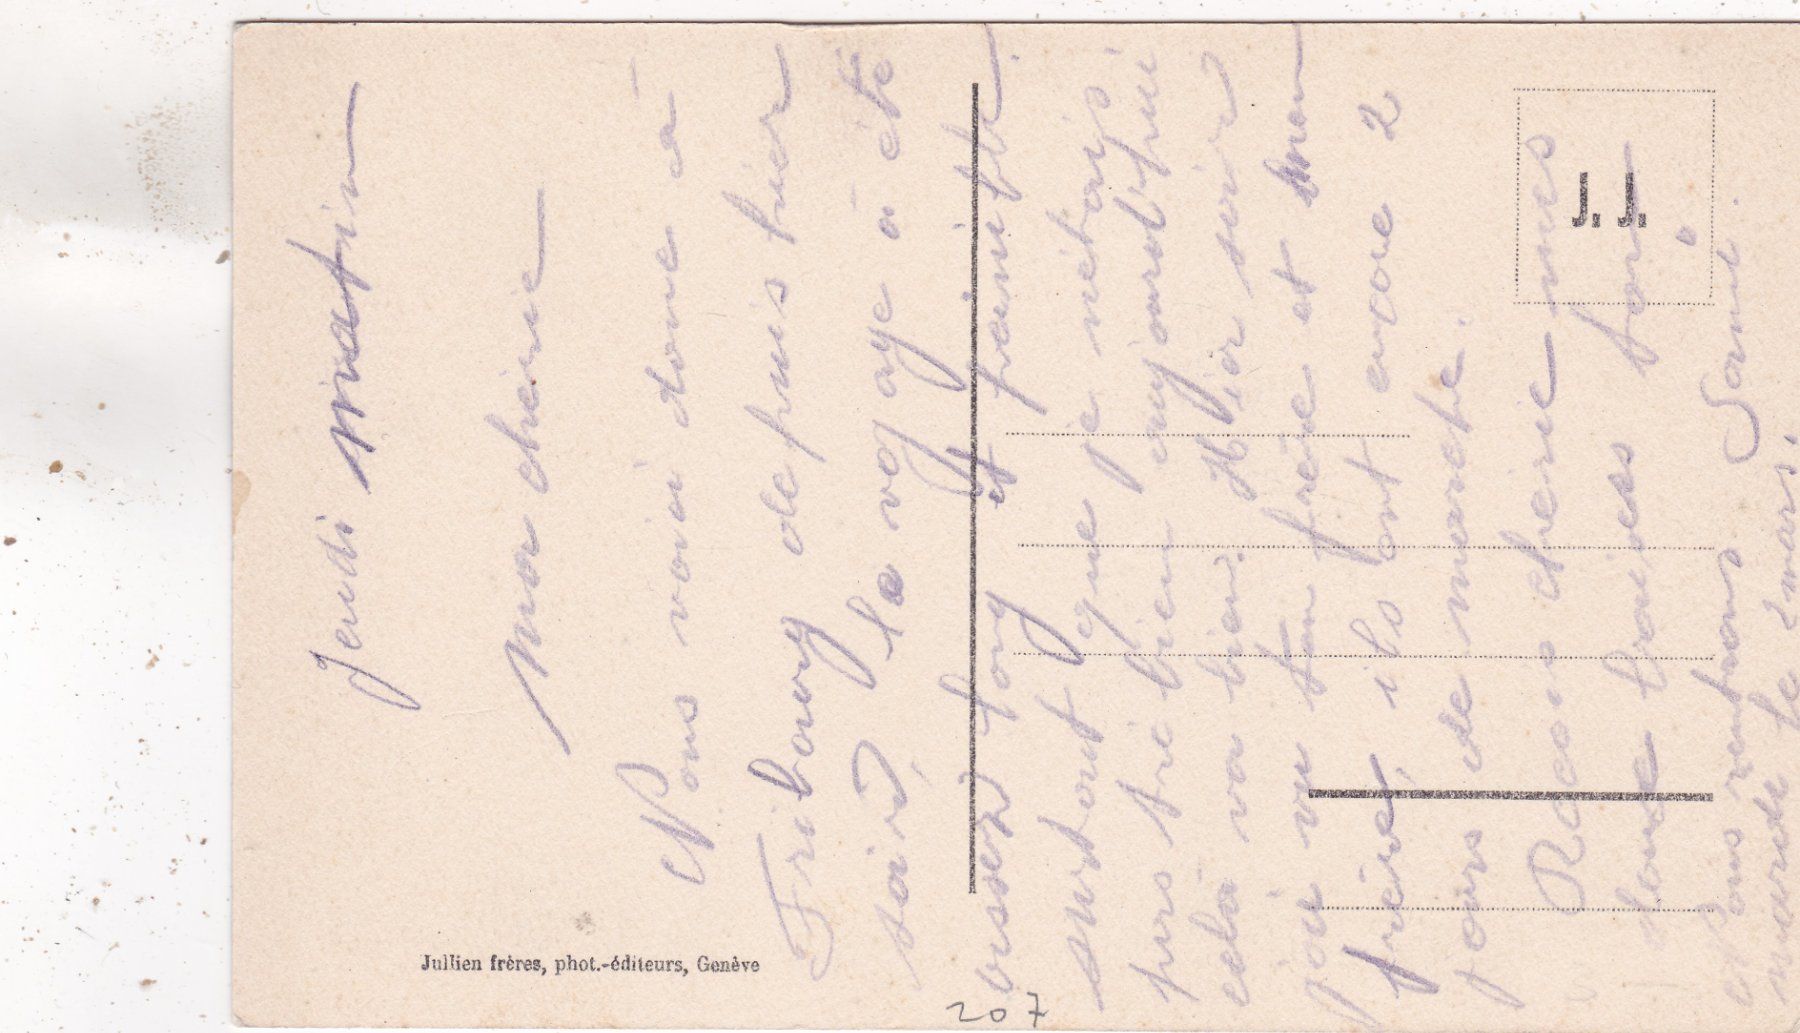 Jeudi matin
Ma cherie
Nous voici donc à
Fribourg depuis hier
soir, le voyage a été
assez long et pénible.
surtout que je nétais
pas tré bien aujourd'hui
cela va bien. Hier soir
jai vu ton frère et mon
frère, ils ont encore 2
jours de marche.
Recois cherie mes
plus tendres
Nous rentrons Sami.
marde le 2 mars.
Jullien frères, phot.-éditeurs, Genève
J. J.
207